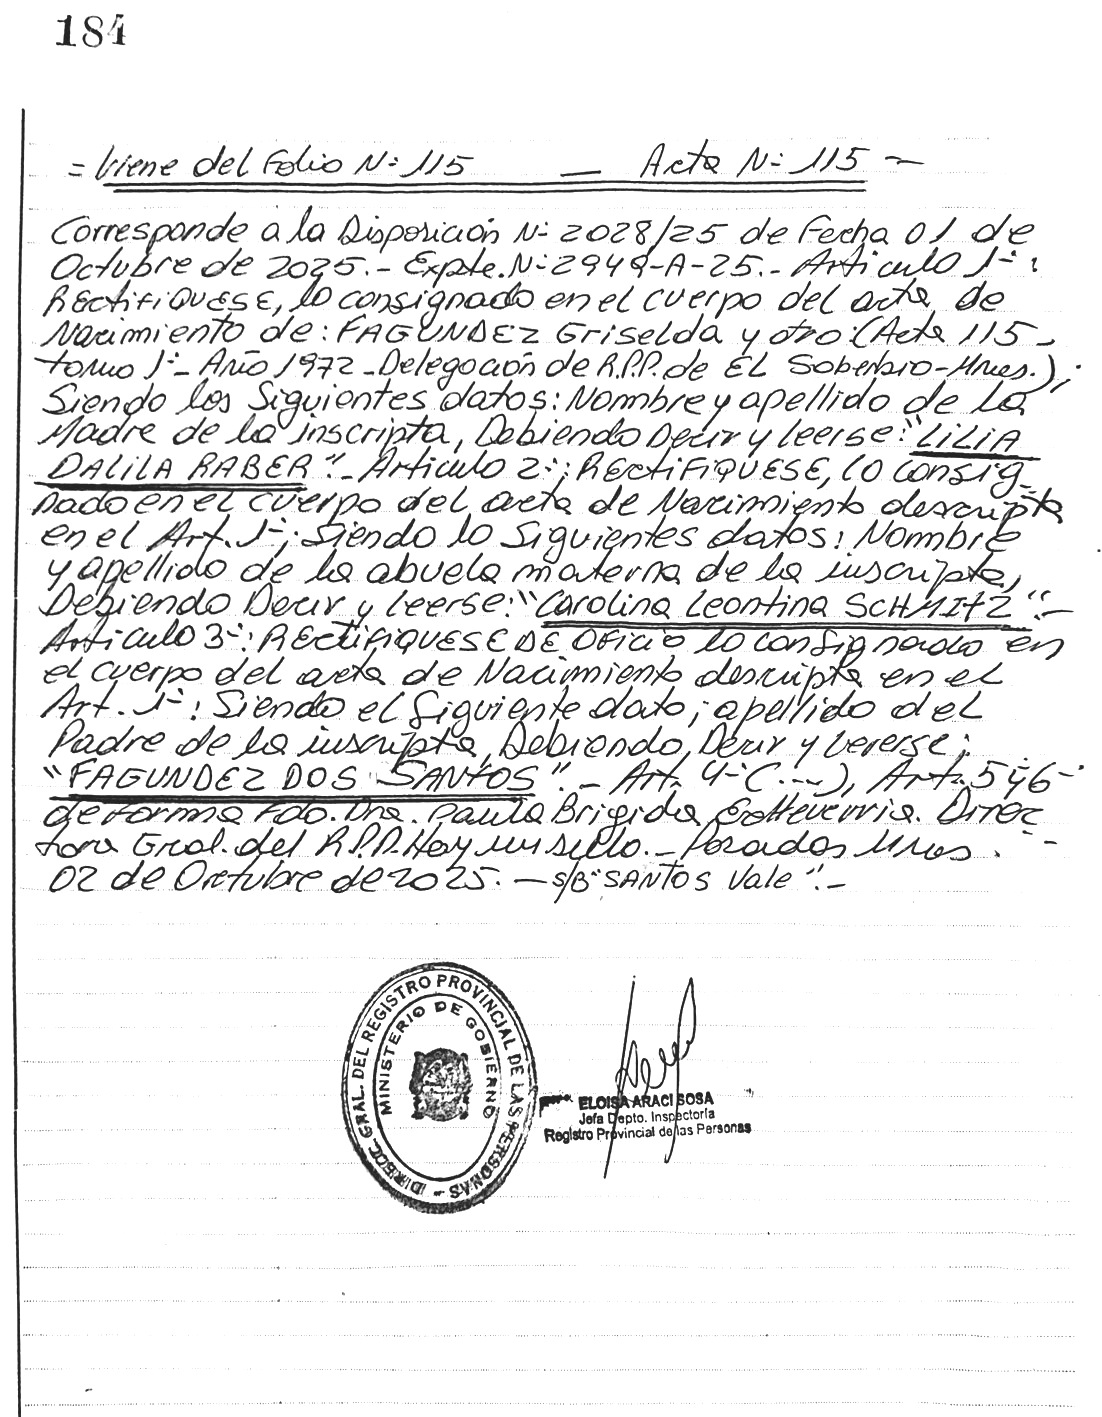 184
= Viene del Folio N: 115 — Acta N: 115 —
Corresponde a la Disposición N: 2028/25 de Fecha 01 de
Octubre de 2025.- Expte. N: 2949-A-25.- Articulo 1-:
RECTIFIQUESE, lo consignado en el cuerpo del acta de
Nacimiento de: FAGUNDEZ Griselda y otro (Acta 115
tomo 1- Año 1972 - Delegación de R.P.P. de EL Soberbio-Mnes.);
Siendo los Siguientes datos: Nommbre y apellido de la
Madre de la inscripta, Debiendo Decir y leerse: "LILIA
DALILA RABER".- Articulo 2-: RECTIFIQUESE, lo consig-
nado en el cuerpo del acta de Nacimiento descripta
en el Art. 1-; Siendo lo Siguientes datos: Nommbre
y apellido de la abuela materna de la inscripta,
Debiendo Decir y leerse: "Carolina Leontina SCHMITZ".-
Articulo 3-: RECTIFIQUESE DE OFICIO lo consignado en
el cuerpo del acta de Nacimiento descripta en el
Art. 1-: Siendo el Siguiente dato; apellido del
Padre de la inscripta, Debiendo, Decir y Lererse;
"FAGUNDEZ DOS SANTOS".- Art. 4- (---), Art. 5 y 6-
de forma Fdo. Dra. Paula Brigida Etcheverria. Direc-
tora Gral. del R.P.P. Hay un sello.- Posadas Mnes. -
02 de Octubre de 2025. — s/B "SANTOS Vale".-
DIRECC. GRAL. DEL REGISTRO PROVINCIAL DE LAS PERSONAS -
MINISTERIO DE GOBIERNO
ELOISA ARACI SOSA
Jefa Depto. Inspectoría
Registro Provincial de las Personas